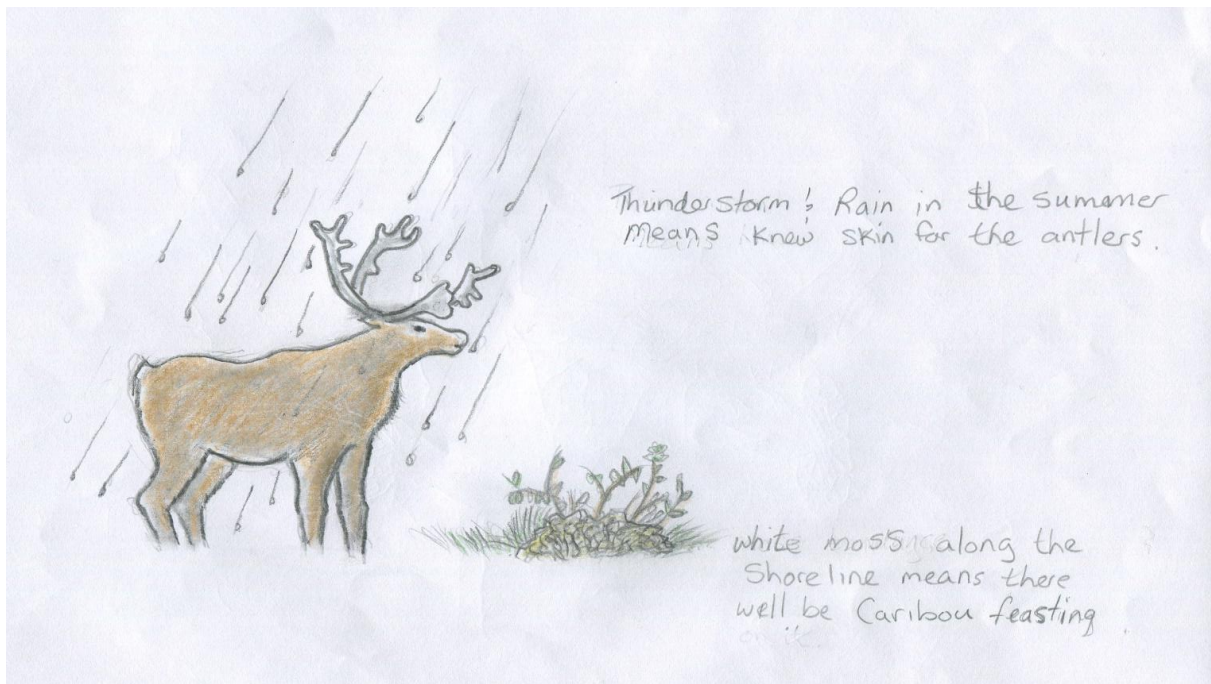 Thunderstorm & Rain in the Summer
means knew skin for the antlers.
white moss along the
Shoreline means there
well be Caribou feasting
on it.